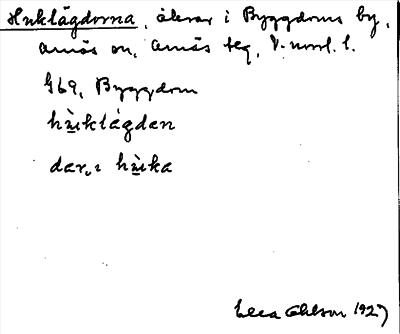 Huklägdorna, åkrar i Byggdoms by,
Arnäs sn, Arnäs tbg, V. norrl. l.
§69, Byggdom
hu̠klägdan
dar, ı hu̠ka
Ella Ohlson 1927